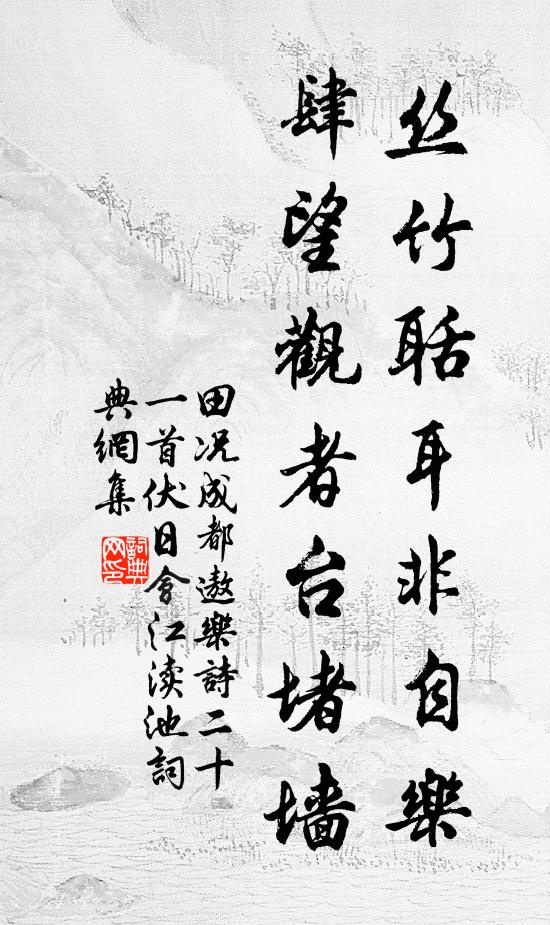 丝竹聒耳非自樂
肆望觀者台堵墙
田况成都遨樂詩二十
一首伏日會江渎池詞
典網集
詞典網印